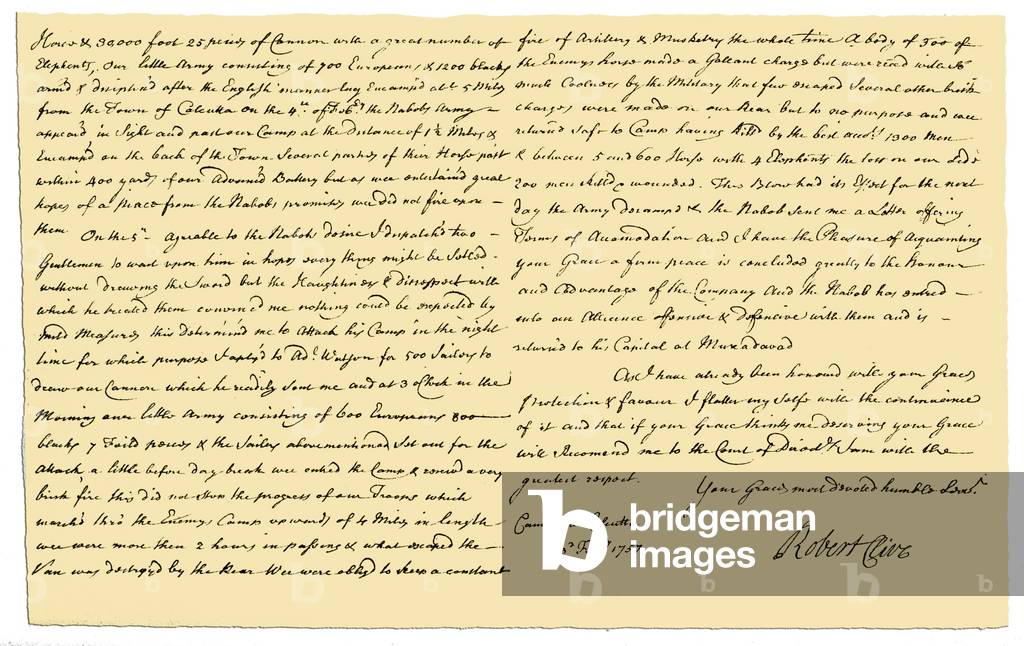 Horse & 30,000 foot 25 peices of Cannon with a great number of
Elephants, Our little Army consisting of 700 Europeans & 1200 blacks
arm'd & disciplin'd after the English manner lay Encamp'd abt. 5 Miles
from the Town of Calcutta on the 4th. of Feby. the Nabobs Army
appear'd in Sight and past our Camp at the distance of 1½ Miles &
Encamp'd on the back of the Town Several parties of their Horse past
within 400 yards of our Advanc'd Battery but as wee entertain'd great
hopes of a Peace from the Nabobs promises wee did not fire upon
them
On the 5th. Agreable to the Nabobs desire I dispatch'd two
Gentlemen to wait upon him in hopes every thing might be Setled
without drawing the Sword but the Haughtiness & disrespect with
which he treated them convinc'd me nothing could be expected by
mild Measures this determin'd me to Attack his Camp in the night
time for which purpose I apply'd to Adl. Watson for 500 Sailors to
draw our Cannon which he readily sent me and at 3 oClock in the
Morning our little Army consisting of 600 Europeans 800
blacks 7 Feild peices & the Sailers abovementioned Set out for the
Attack, a little before day-break wee entred the Camp & receiv'd a very
brisk fire this did not stop the progress of our Troops which
march'd thro' the Enemys Camp upwards of 4 Miles in length
wee were more then 2 hours in passing & what escaped the
Van was destroy'd by the Rear Wee were oblig'd to keep a constant
fire of Artillery & Musketry the whole time A body of 300 of
the Enemys horse made a Gallant charge but were receiv'd with so
much Coolness by the Military that few escaped Several other brisk
charges were made on our Rear but to no purpose and wee
returned Safe to Camp having kill'd by the best accots. 1300 Men
& between 5 and 600 Horse with 4 Elephants the loss on our Side
200 men kill'd & wounded. This Blow had its Effect for the next
day the Army decamp'd & the Nabob Sent me a Letter offering
Terms of Accomodation and I have the Pleasure of Acquainting
your Grace a firm peace is concluded greatly to the Honour
and Advantage of the Company And the Nabob has entred
into an Alliance offensive & defensive with them and is
return'd to his Capital at Muxadavad
As I have already been honour'd with your Graces
Protection & favour I flatter my Selfe with the continuance
of it and that if your Grace thinks me deserving your Grace
will Recomend me to the Court of Direct. I am with the
greatest respect.
Your Graces most devoted humble Servt.
Camp
Feby. 1757
Robert Clive
b
bridgeman
images